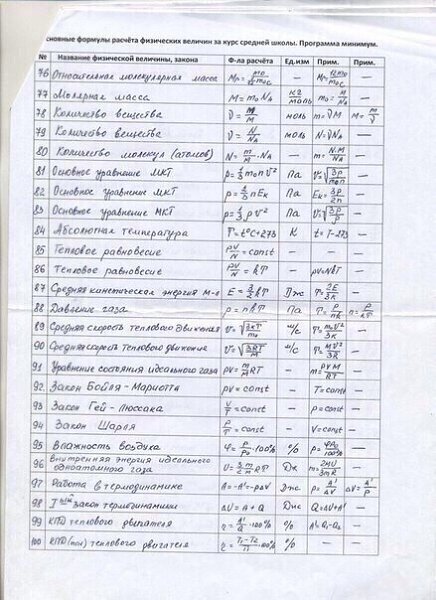 основные формулы расчёта физических величин за курс средней школы. Программа минимум.
№ Название физической величины, закона Ф-ла расчёта Ед.изм Прим. Прим.
76 Относительная молекулярная масса —
77 Молярная масса M = m₀ N_A кг/моль m₀ = M/N_A —
78 Количество вещества ν = m/M моль m = νM M = m/ν
79 Количество вещества ν = N/N_A моль N = νN_A —
80 Количество молекул (атомов) N = m/M · N_A — m = N·M/N_A —
81 Основное уравнение МКТ p = 1/3 m₀ n v² Па v = √3p/m₀n —
82 Основное уравнение МКТ p = 2/3 n Eк Па Eк = 3p/2n —
83 Основное уравнение МКТ p = 1/3 ρ v² Па v = √3p/ρ —
84 Абсолютная температура T = t°C + 273 К t = T - 273 —
85 Тепловое равновесие pV/N = const — — —
86 Тепловое равновесие pV/N = kT — pV = NkT —
87 Средняя кинетическая энергия м-л E = 3/2 kT Дж T = 2E/3k —
88 Давление газа p = nkT Па T = p/nk n = p/kT
89 Средняя скорость теплового движения v = √3kT/m₀ м/с T = m₀v²/3k —
90 Средняя скорость теплового движения v = √3RT/M м/с T = Mv²/3R —
91 Уравнение состояния идеального газа pV = m/M RT — m = pVM/RT —
92 Закон Бойля-Мариотта pV = const — T = const —
93 Закон Гей-Люссака V/T = const — p = const —
94 Закон Шарля p/T = const — V = const —
95 Влажность воздуха φ = p/p₀ · 100% % p = φp₀/100% —
96 Внутренняя энергия идеального одноатомного газа U = 3/2 m/M RT Дж m = 2MU/3RT —
97 Работа в термодинамике A = -A' = -pΔV Дж p = A'/ΔV ΔV = A'/p
98 I ый закон термодинамики ΔU = A + Q Дж Q = ΔU + A' —
99 КПД теплового двигателя η = A'/Q · 100% % A' = Q₁ - Q₂ —
100 КПД (max) теплового двигателя η = T₁ - T₂/T₁ · 100% % — —